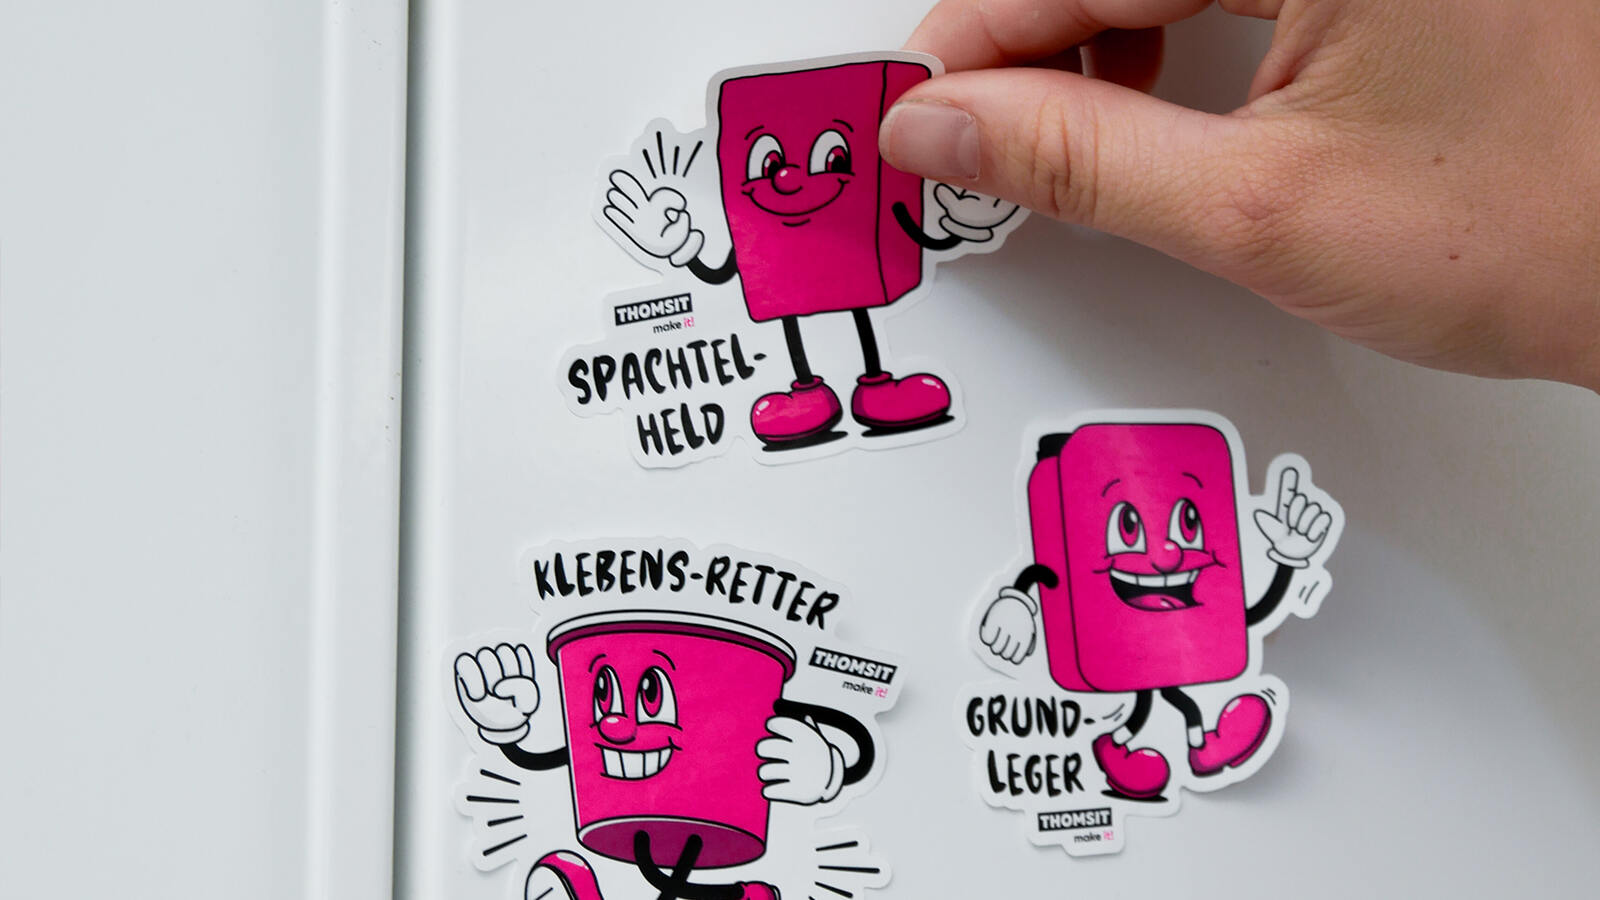 THOMSIT
make it!
SPACHTEL-
HELD
KLEBENS-RETTER
THOMSIT
make it!
GRUND-
LEGER
THOMSIT
make it!